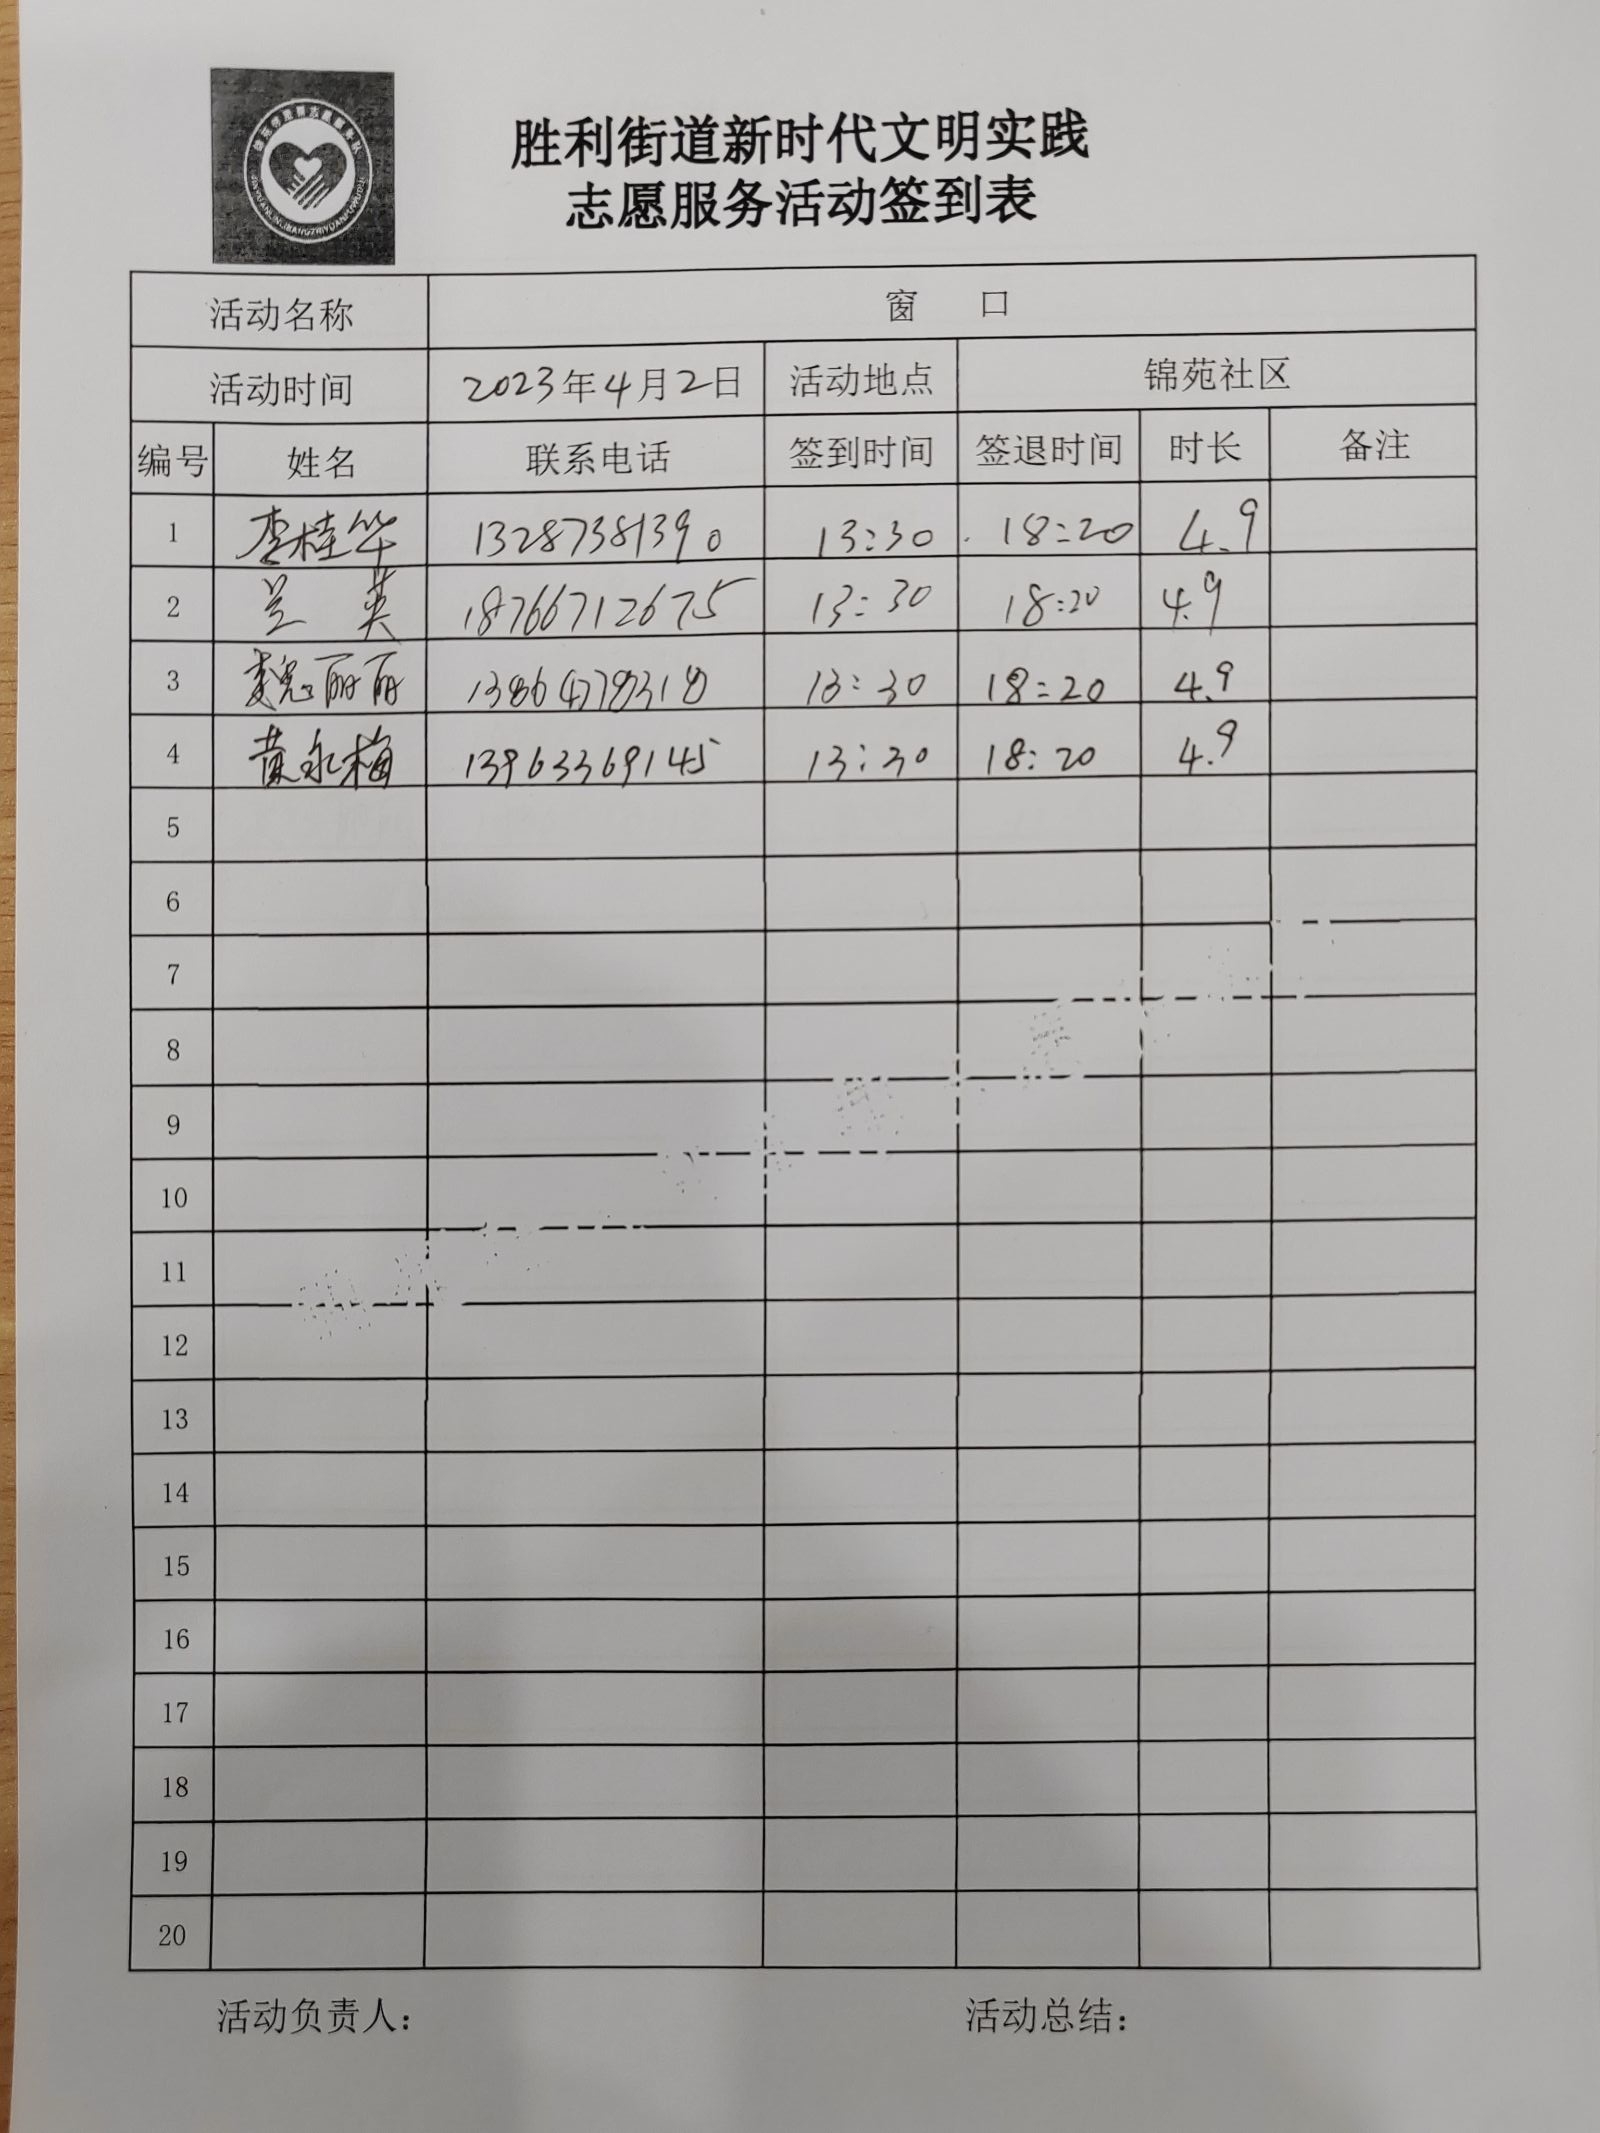 胜利街道新时代文明实践
志愿服务活动签到表
活动名称 窗 口
活动时间 2023年4月2日 活动地点 锦苑社区
编号 姓名 联系电话 签到时间 签退时间 时长 备注
1 李桂华 13287381390 13:30 18:20 4.9
2 兰英 18766712675 13:30 18:20 4.9
3 魏丽丽 13:30 18:20 4.9
4 黄永梅 13963369145 13:30 18:20 4.9
5
6
7
8
9
10
11
12
13
14
15
16
17
18
19
20
活动负责人: 活动总结: